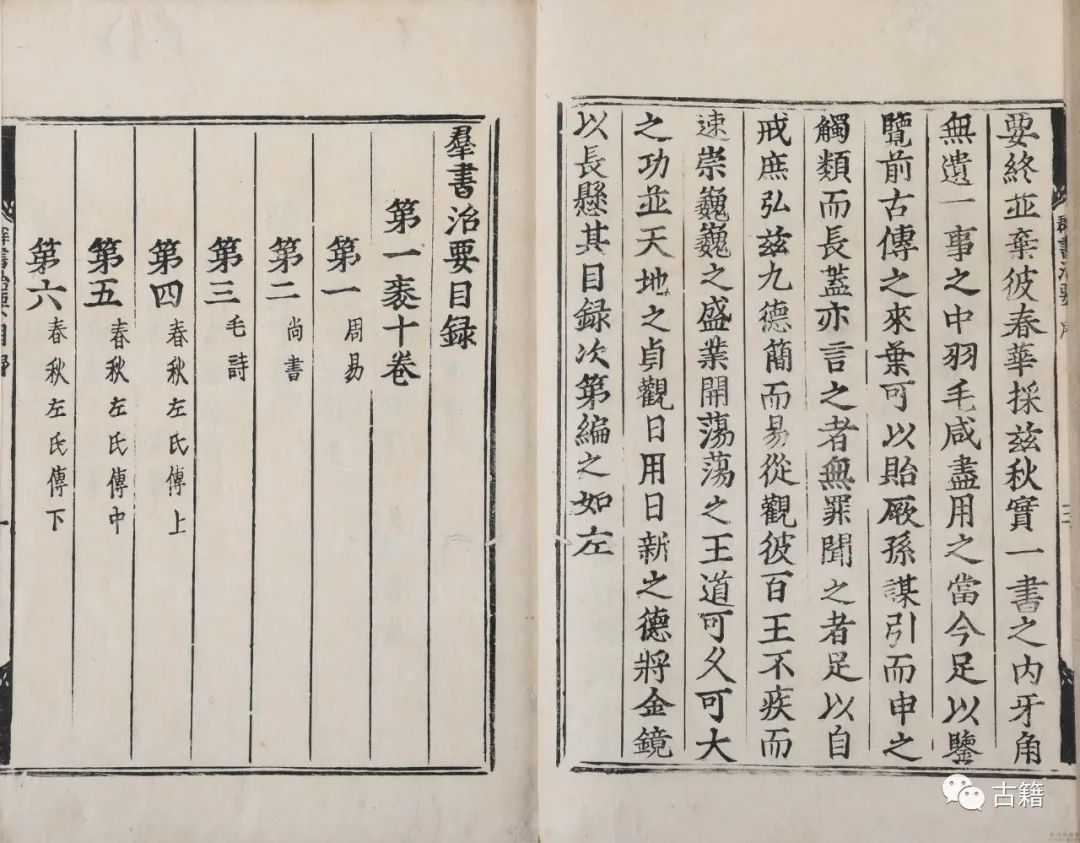 要終並棄彼春華採茲秋實一書之内牙角
無遺一事之中羽毛咸盡用之當今足以鑒
覽前古傳之來葉可以貽厥孫謀引而申之
觸類而長蓋亦言之者無罪聞之者足以自
戒庶弘茲九德簡而易從觀彼百王不疾而
速崇巍巍之盛業開蕩蕩之王道可久可大
之功並天地之貞觀日用日新之德將金鏡
以長懸其目録次第編之如左
羣書治要目録
第一袠十卷
第一 周易
第二 尚書
第三 毛詩
第四 春秋左氏傳上
第五 春秋左氏傳中
第六 春秋左氏傳下
古籍